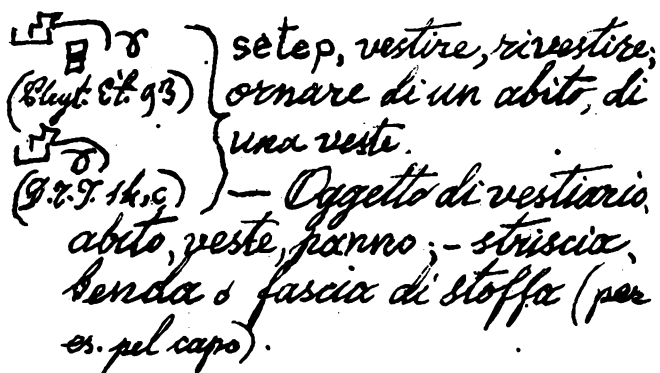 setep, vestire, rivestire;
(Pleyt. Ét. 93) ornare di un abito, di
una veste.
— Oggetto di vestiario,
abito, veste, panno; – striscia,
benda o fascia di stoffa (per
es. pel capo).